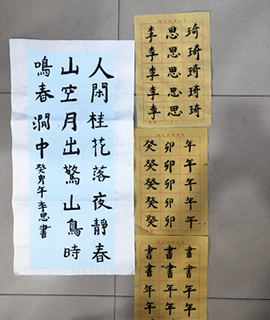 人閑桂花落夜靜春
山空月出驚山鳥時
鳴春澗中
癸卯午李思書
琦琦琦琦琦
思思思思思
李李李李李
午午午午午
卯卯卯卯卯
癸癸癸癸癸
書書年年
書書年年
書書年年